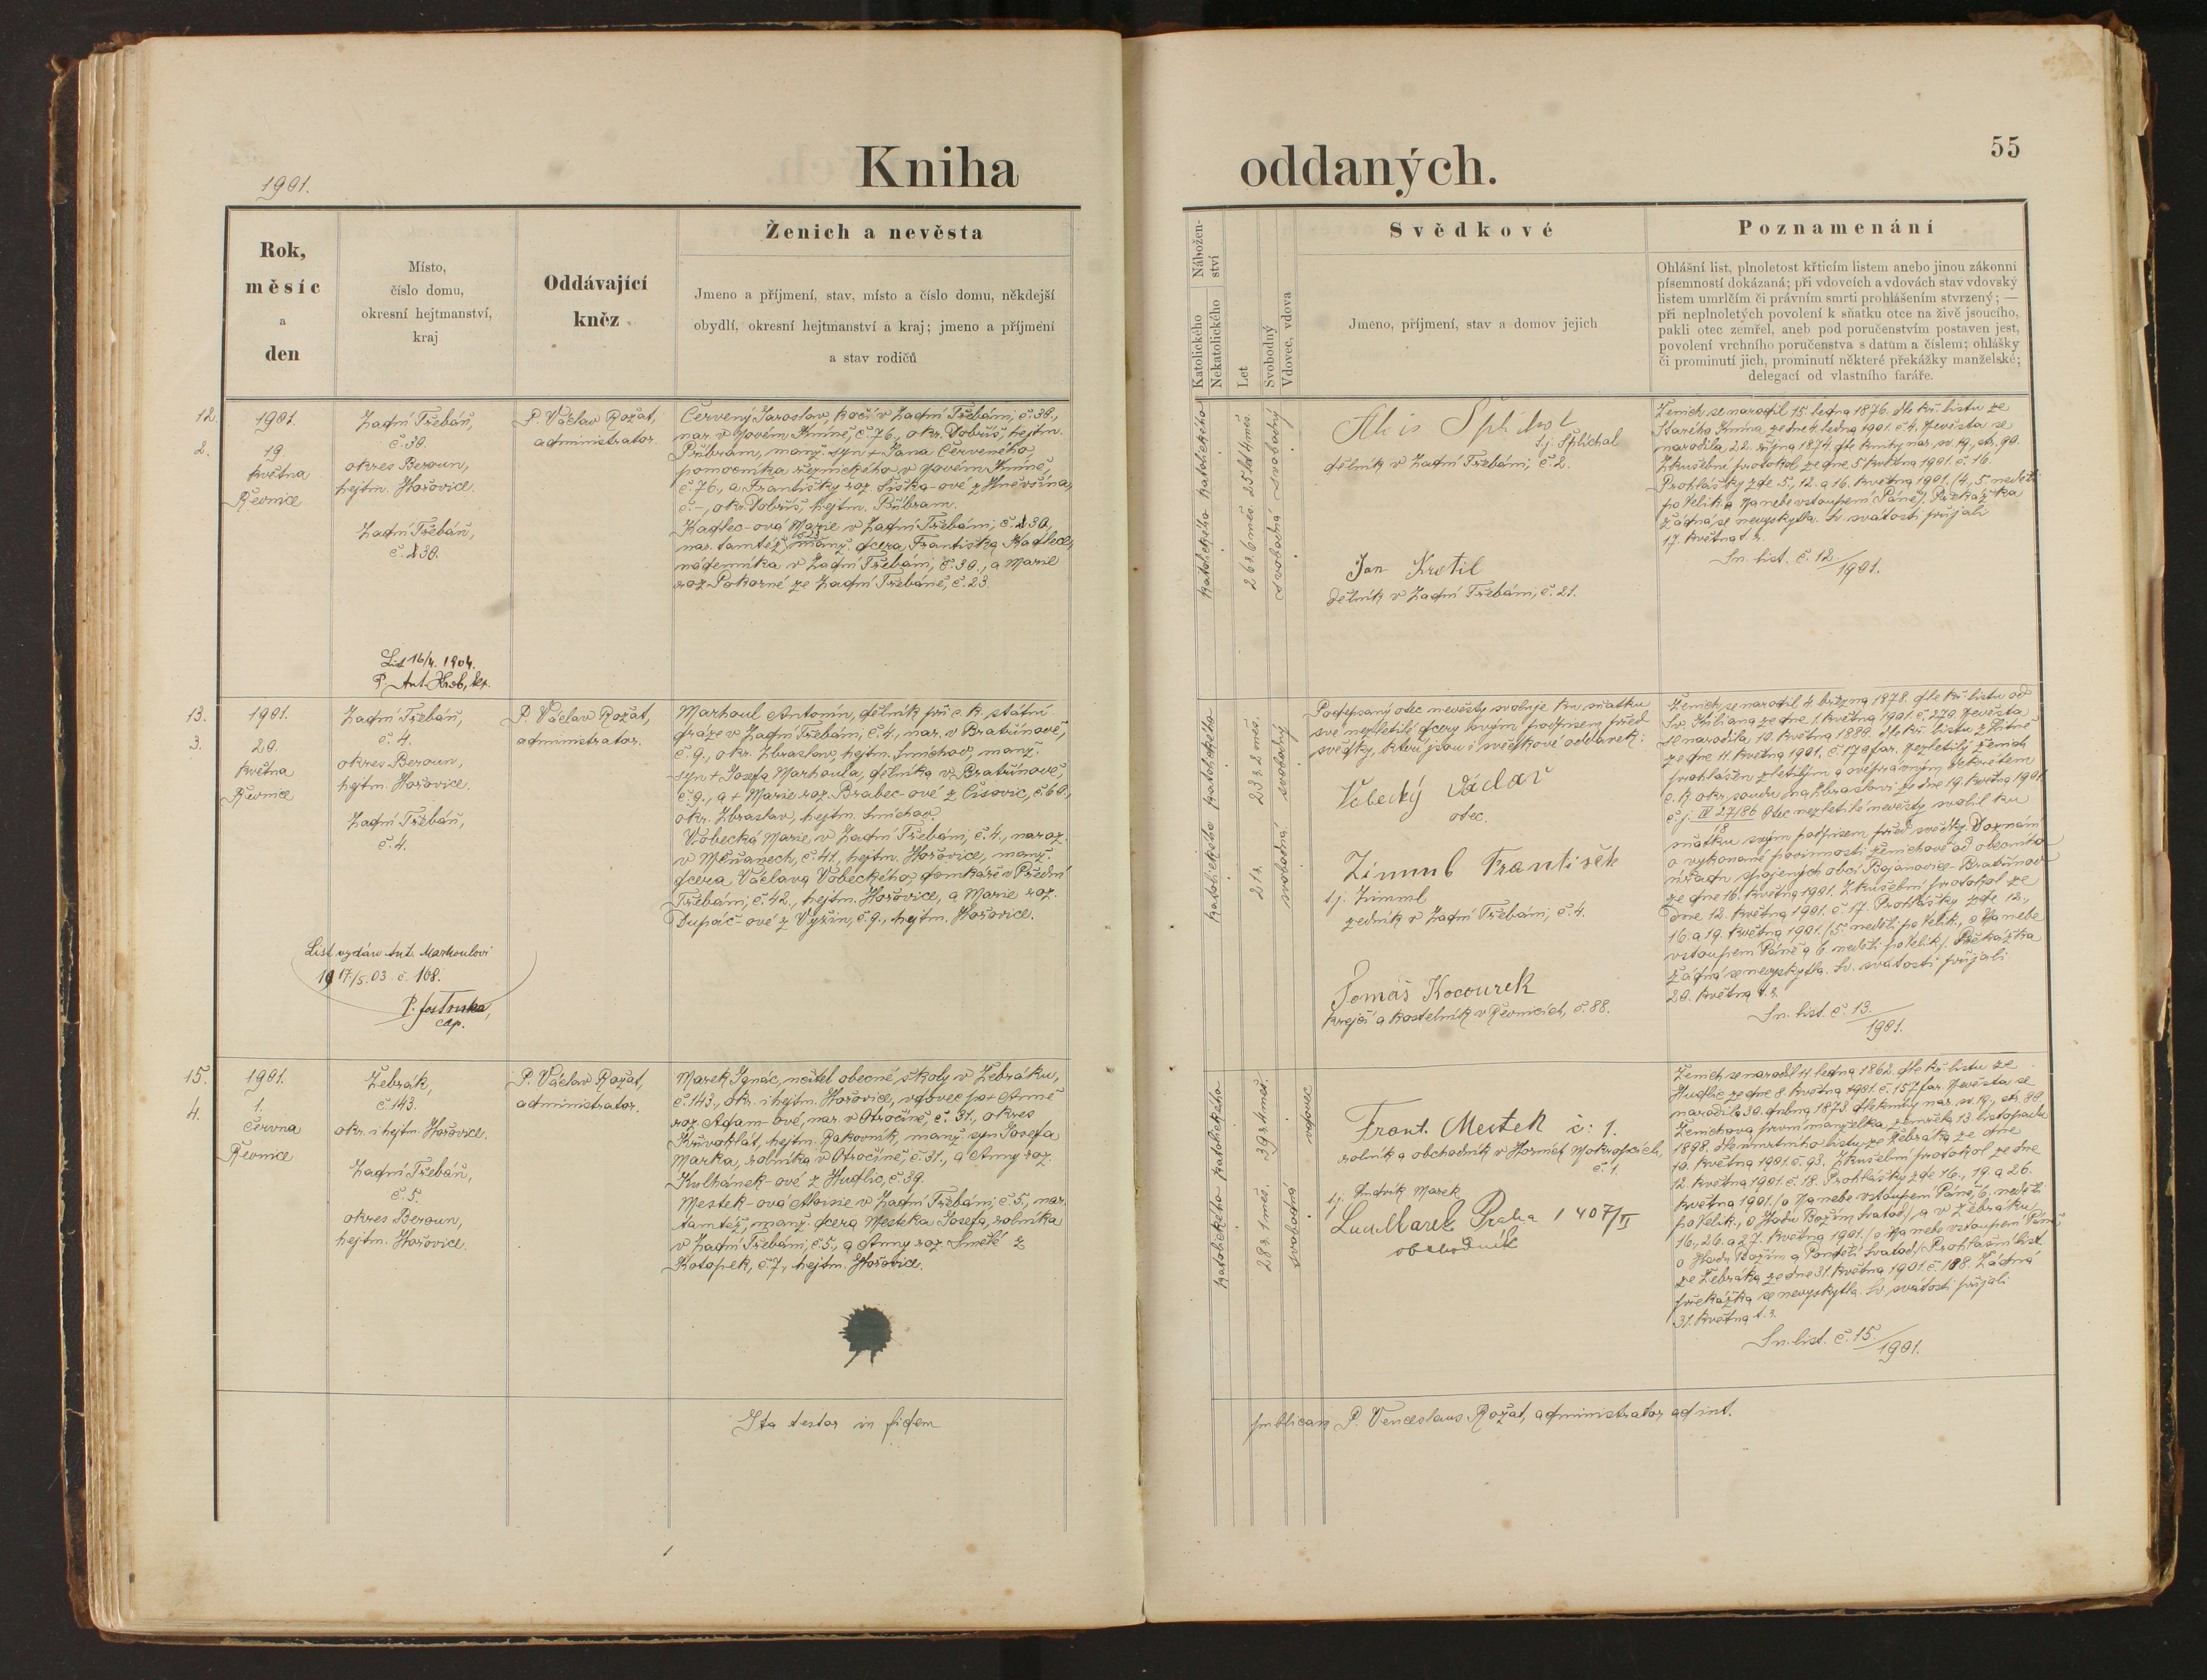 1901.
Kniha
oddaných.
55
Rok,
měsíc
a
den
Místo,
číslo domu,
okresní hejtmanství,
kraj
Oddávající
kněz
Ženich a nevěsta
Jmeno a příjmení, stav, místo a číslo domu, někdejší
obydlí, okresní hejtmanství a kraj; jmeno a příjmení
a stav rodičů
Nábožen-
ství
Katolického
Nekatolického
Let
Svobodný
Vdovec, vdova
Svědkové
Jmeno, příjmení, stav a domov jejich
Poznamenání
Ohlášní list, plnoletost křticím listem anebo jinou zákonní
písemností dokázaná; při vdovcích a vdovách stav vdovský
listem umrlčím či právním smrti prohlášením stvrzený; —
při neplnoletých povolení k sňatku otce na živě jsoucího,
pakli otec zemřel, aneb pod poručenstvím postaven jest,
povolení vrchního poručenstva s datum a číslem; ohlášky
či prominutí jich, prominutí některé překážky manželské;
delegací od vlastního faráře.
12.
2.
1901.
19.
května
Řevnice
Zadní Třebáň,
č. 30.
okres Beroun,
hejtm. Hořovice.
Zadní Třebáň,
č. 30.
List 16/4. 1904.
P. Ant. Hrob, kp.
P. Václav Rožat,
administrator.
Červený Jaroslav, kočí v Zadní Třebáni, č. 30.,
nar. v Novém Kníně, č. 76., okr. Dobříš, hejtm.
Příbram, manž. syn + Jana Červeného,
pomocníka řeznického v Novém Kníně,
č. 76., a Františky roz. Fiška-ové z Hněvšína,
č. -, okr. Dobříš, hejtm. Příbram.
Kadlec-ova Marie v Zadní Třebáni, č. 30.,
nar. tamtéž, manž. dcera Františka Kadlece,
nádenníka v Zadní Třebáni, č. 30., a Marie
roz. Pokorné ze Zadní Třebáně, č. 23.
katolického katolického
26 r. 6 měs. 25 let 4 měs.
svobodná svobodný
Alois Šplichal
t.j. Šplichal
dělník v Zadní Třebáni, č. 2.
Jan Krotil
dělník v Zadní Třebáni, č. 21.
Ženich se narodil 15. ledna 1876. dle kř. listu ze
Starého Knína ze dne 4. ledna 1901. č. 4. Nevěsta se
narodila 22. října 1874. dle knihy nar. sv. 19., str. 90.
Zkušební protokol ze dne 5. května 1901. č. 16.
Prohlášky zde 5., 12. a 16. května 1901. (4., 5. neděli
po Velik. a Na nebe vstoupení Páně). Překážka
žádná se nevyskytla. Sv. svátosti přijali
17. května t. r.
Sn. list. č. 12./1901.
13.
3.
1901.
20.
května
Řevnice
Zadní Třebáň,
č. 4.
okres Beroun,
hejtm. Hořovice.
Zadní Třebáň,
č. 4.
List vydán Ant. Marhoulovi
17/5. 03 č. 108.
cap.
P. Václav Rožat,
administrator.
Marhoul Antonín, dělník při c. k. státní
dráze v Zadní Třebáni, č. 4., nar. v Bratřínově,
č. 9., okr. Zbraslav, hejtm. Smíchov, manž.
syn + Josefa Marhoula, dělníka v Bratřínově,
č. 9., a + Marie roz. Brabec-ové z Čisovic, č. 60.,
okr. Zbraslav, hejtm. Smíchov.
Vobecká Marie v Zadní Třebáni, č. 4., naroz.
v Měňanech, č. 41., hejtm. Hořovice, manž.
dcera Václava Vobeckého, domkáře v Přední
Třebáni, č. 42., hejtm. Hořovice, a Marie roz.
Dupáč-ové z Vyžin, č. 9., hejtm. Hořovice.
katolického katolického
21 r. 23 r. 2 měs.
svobodná svobodný
Podepsaný otec nevěsty svoluje ku sňatku
své nezletilé dcery svým podpisem před
svědky, kteří jsou i svědkové oddavek:
Vobecký Václav
otec.
Zimml František
t.j. Zimml
zedník v Zadní Třebáni, č. 4.
Tomáš Kocourek
krejčí a kostelník v Řevnicích, č. 88.
Ženich se narodil 4. března 1878. dle kř. listu od
Sv. Kiliana ze dne 1. května 1901. č. 270. Nevěsta
se narodila 10. května 1880. dle kř. listu z Litně
ze dne 11. května 1901. č. 170 far. Nezletilý ženich
prohlášen zletilým a svéprávným dekretem
c. k. okr. soudu na Zbraslavi ze dne 19. května 1901
č. j. IV 27/86 Otec nezletilé nevěsty svolil ku
18
sňatku svým podpisem před svědky.
o vykonané povinnosti ženichově od obecního
úřadu spojených obcí Bojanovice-Bratřínov
ze dne 16. května 1901. Zkušební protokol ze
dne 12. května 1901. č. 17. Prohlášky zde 12.,
16. a 19. května 1901. (5. neděli po Velik., o Na nebe
vstoupení Páně a 6. neděli po Velik.). Překážka
žádná se nevyskytla. Sv. svátosti přijali
20. května t. r.
Sn. list. č. 13./1901.
15.
4.
1901.
1.
června
Řevnice
Žebrák,
č. 143.
okr. i hejtm. Hořovice.
Zadní Třebáň,
č. 5.
okres Beroun,
hejtm. Hořovice.
P. Václav Rožat,
administrator.
Marek Ignác, učitel obecné školy v Žebráku,
č. 143., okr. i hejtm. Hořovice, vdovec po + Anně
roz. Adam-ové, nar. v Otročině, č. 31., okres
Křivoklát, hejtm. Rakovník, manž. syn Josefa
Marka, rolníka v Otročině, č. 31., a Anny roz.
Kulhánek-ové z Hudlic, č. 39.
Mestek-ová Aloisie v Zadní Třebáni, č. 5., nar.
tamtéž, manž. dcera Mesteka Josefa, rolníka
v Zadní Třebáni, č. 5., a Anny roz. Smělé z
Kotopek, č. 7., hejtm. Hořovice.
katolického katolického
28 r. 1 měs. 39 r. 4 měs.
svobodná vdovec
Frant. Mestek č: 1.
rolník a obchodník v Horních Mokropsích,
č. 1.
t.j. Ludvík Marek
Lud. Marek Praha 1407/II
obchodník
Ženich se narodil 4. ledna 1862. dle kř. listu ze
Hudlic ze dne 8. května 1901. č. 157 far. Nevěsta se
narodila 30. dubna 1873. dle knihy nar. sv. 19., str. 80.
Ženichova první manželka zemřela 13. listopadu
1898. dle úmrtního listu ze Žebráka ze dne
10. května 1901. č. 93. Zkušební protokol ze dne
12. května 1901. č. 18. Prohlášky zde 16., 19. a 26.
května 1901. (o Na nebe vstoupení Páně, 6. neděli
po Velik., o Hodu Božím svatod.) a v Žebráku
16., 26. a 27. května 1901. (o Na nebe vstoupení Páně
o Hodu Božím a Pondělí svatod.) Prohlášní list
ze Žebráka ze dne 31. května 1901. č. 188. Žádná
překážka se nevyskytla. Sv. svátosti přijali
31. května t. r.
Sn. list. č. 15./1901.
Ita testor in fidem
publicam P. Venceslaus Rožat, administrator ad int.